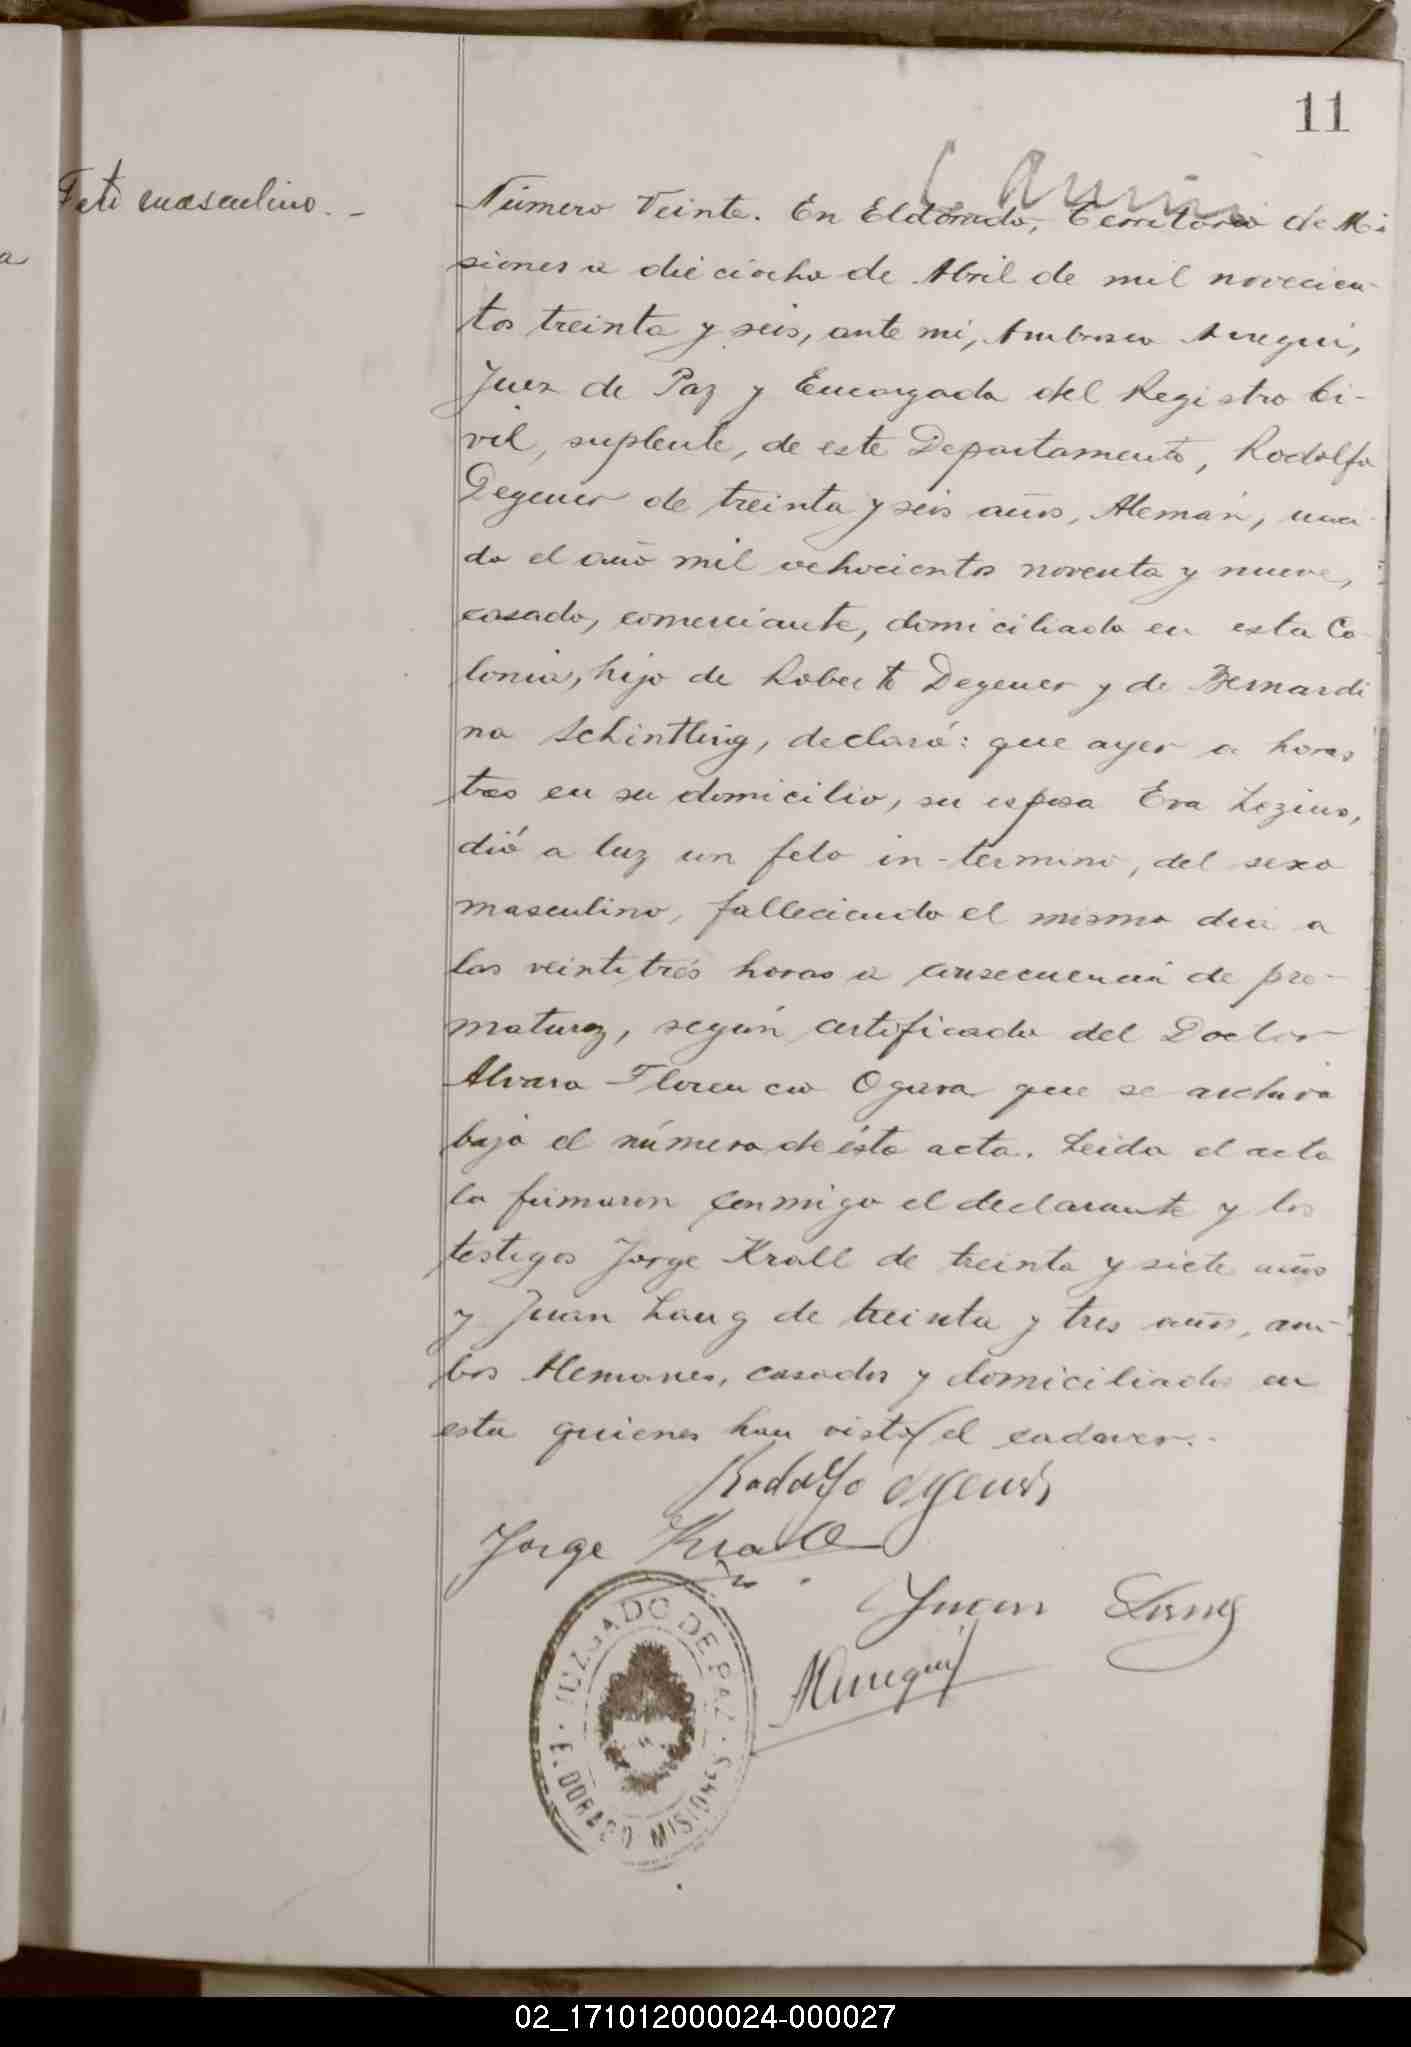 11
Feto masculino. -
a
Número Veinte. En Eldorado, Territorio de Mi
siones a dieciocho de Abril de mil novecien-
tos treinta y seis, ante mi, Ambrosio Auregui,
Juez de Paz y Encargado del Registro Ci-
vil, suplente, de este Departamento, Rodolfo
Degener de treinta y seis años, Alemán, naci-
do el año mil ochocientos noventa y nueve,
casado, comerciante, domiciliado en esta Co
lonia, hijo de Roberto Degener y de Bernardi
na Schintling, declaró: que ayer a horas
tres en su domicilio, su esposa Eva Lezius,
dió a luz un feto in-termino, del sexo
masculino, falleciendo el mismo dia a
las veintitrés horas a consecuencia de pre-
maturez, según certificado del Doctor
Alvaro Florencio Ogara que se archiva
bajo el número de ésta acta. Leida el acta
la firmaron conmigo el declarante y los
testigos Jorge Krall de treinta y siete años
y Juan Lang de treinta y tres años, am-
bos Alemanes, casados y domiciliados en
esta quienes han visto el cadaver.-
Rodolfo Degener
Jorge Krall
Juan Lang
JUZGADO DE PAZ
ELDORADO MISIONES
02_171012000024-000027